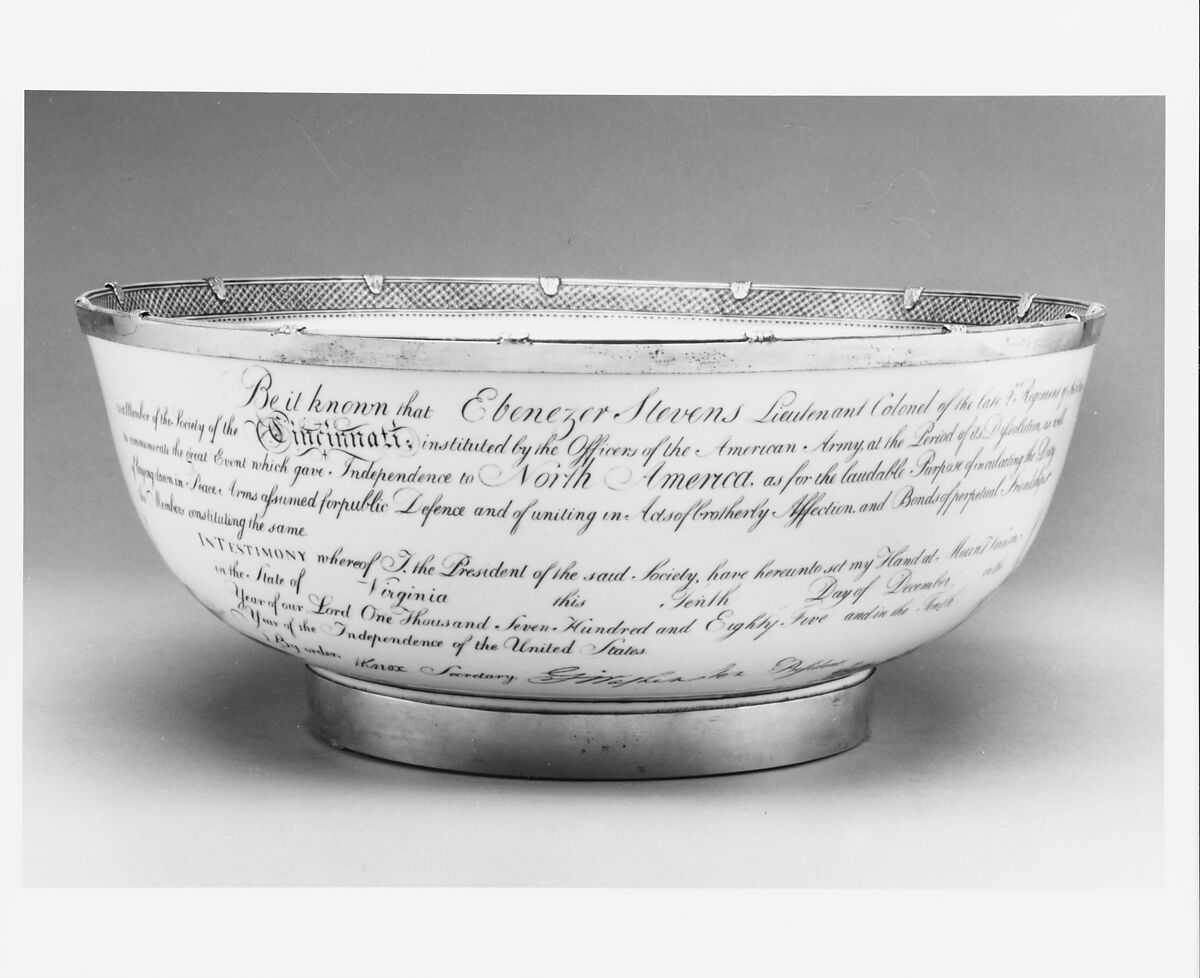 Be it known that Ebenezer Stevens Lieutenant Colonel of the late 2.d Regiment of
is a Member of the Society of the Cincinnati; instituted by the Officers of the American Army, at the Period of its Dissolution, as well
to commemorate the Great Event which gave Independence to North America, as for the laudable Purpose of inculcating the Duty
of laying down in Peace Arms assumed for public Defence and of uniting in Acts of brotherly Affection, and Bonds of perpetual Friendship
the Members constituting the same.
IN TESTIMONY whereof I, the President of the said Society, have hereunto set my Hand at Mount Vernon
in the State of Virginia this Tenth Day of December, in the
Year of our Lord One Thousand Seven Hundred and Eighty Five and in the Tenth
Year of the Independence of the United States.
By order. HKnox Secretary. G:Washington President